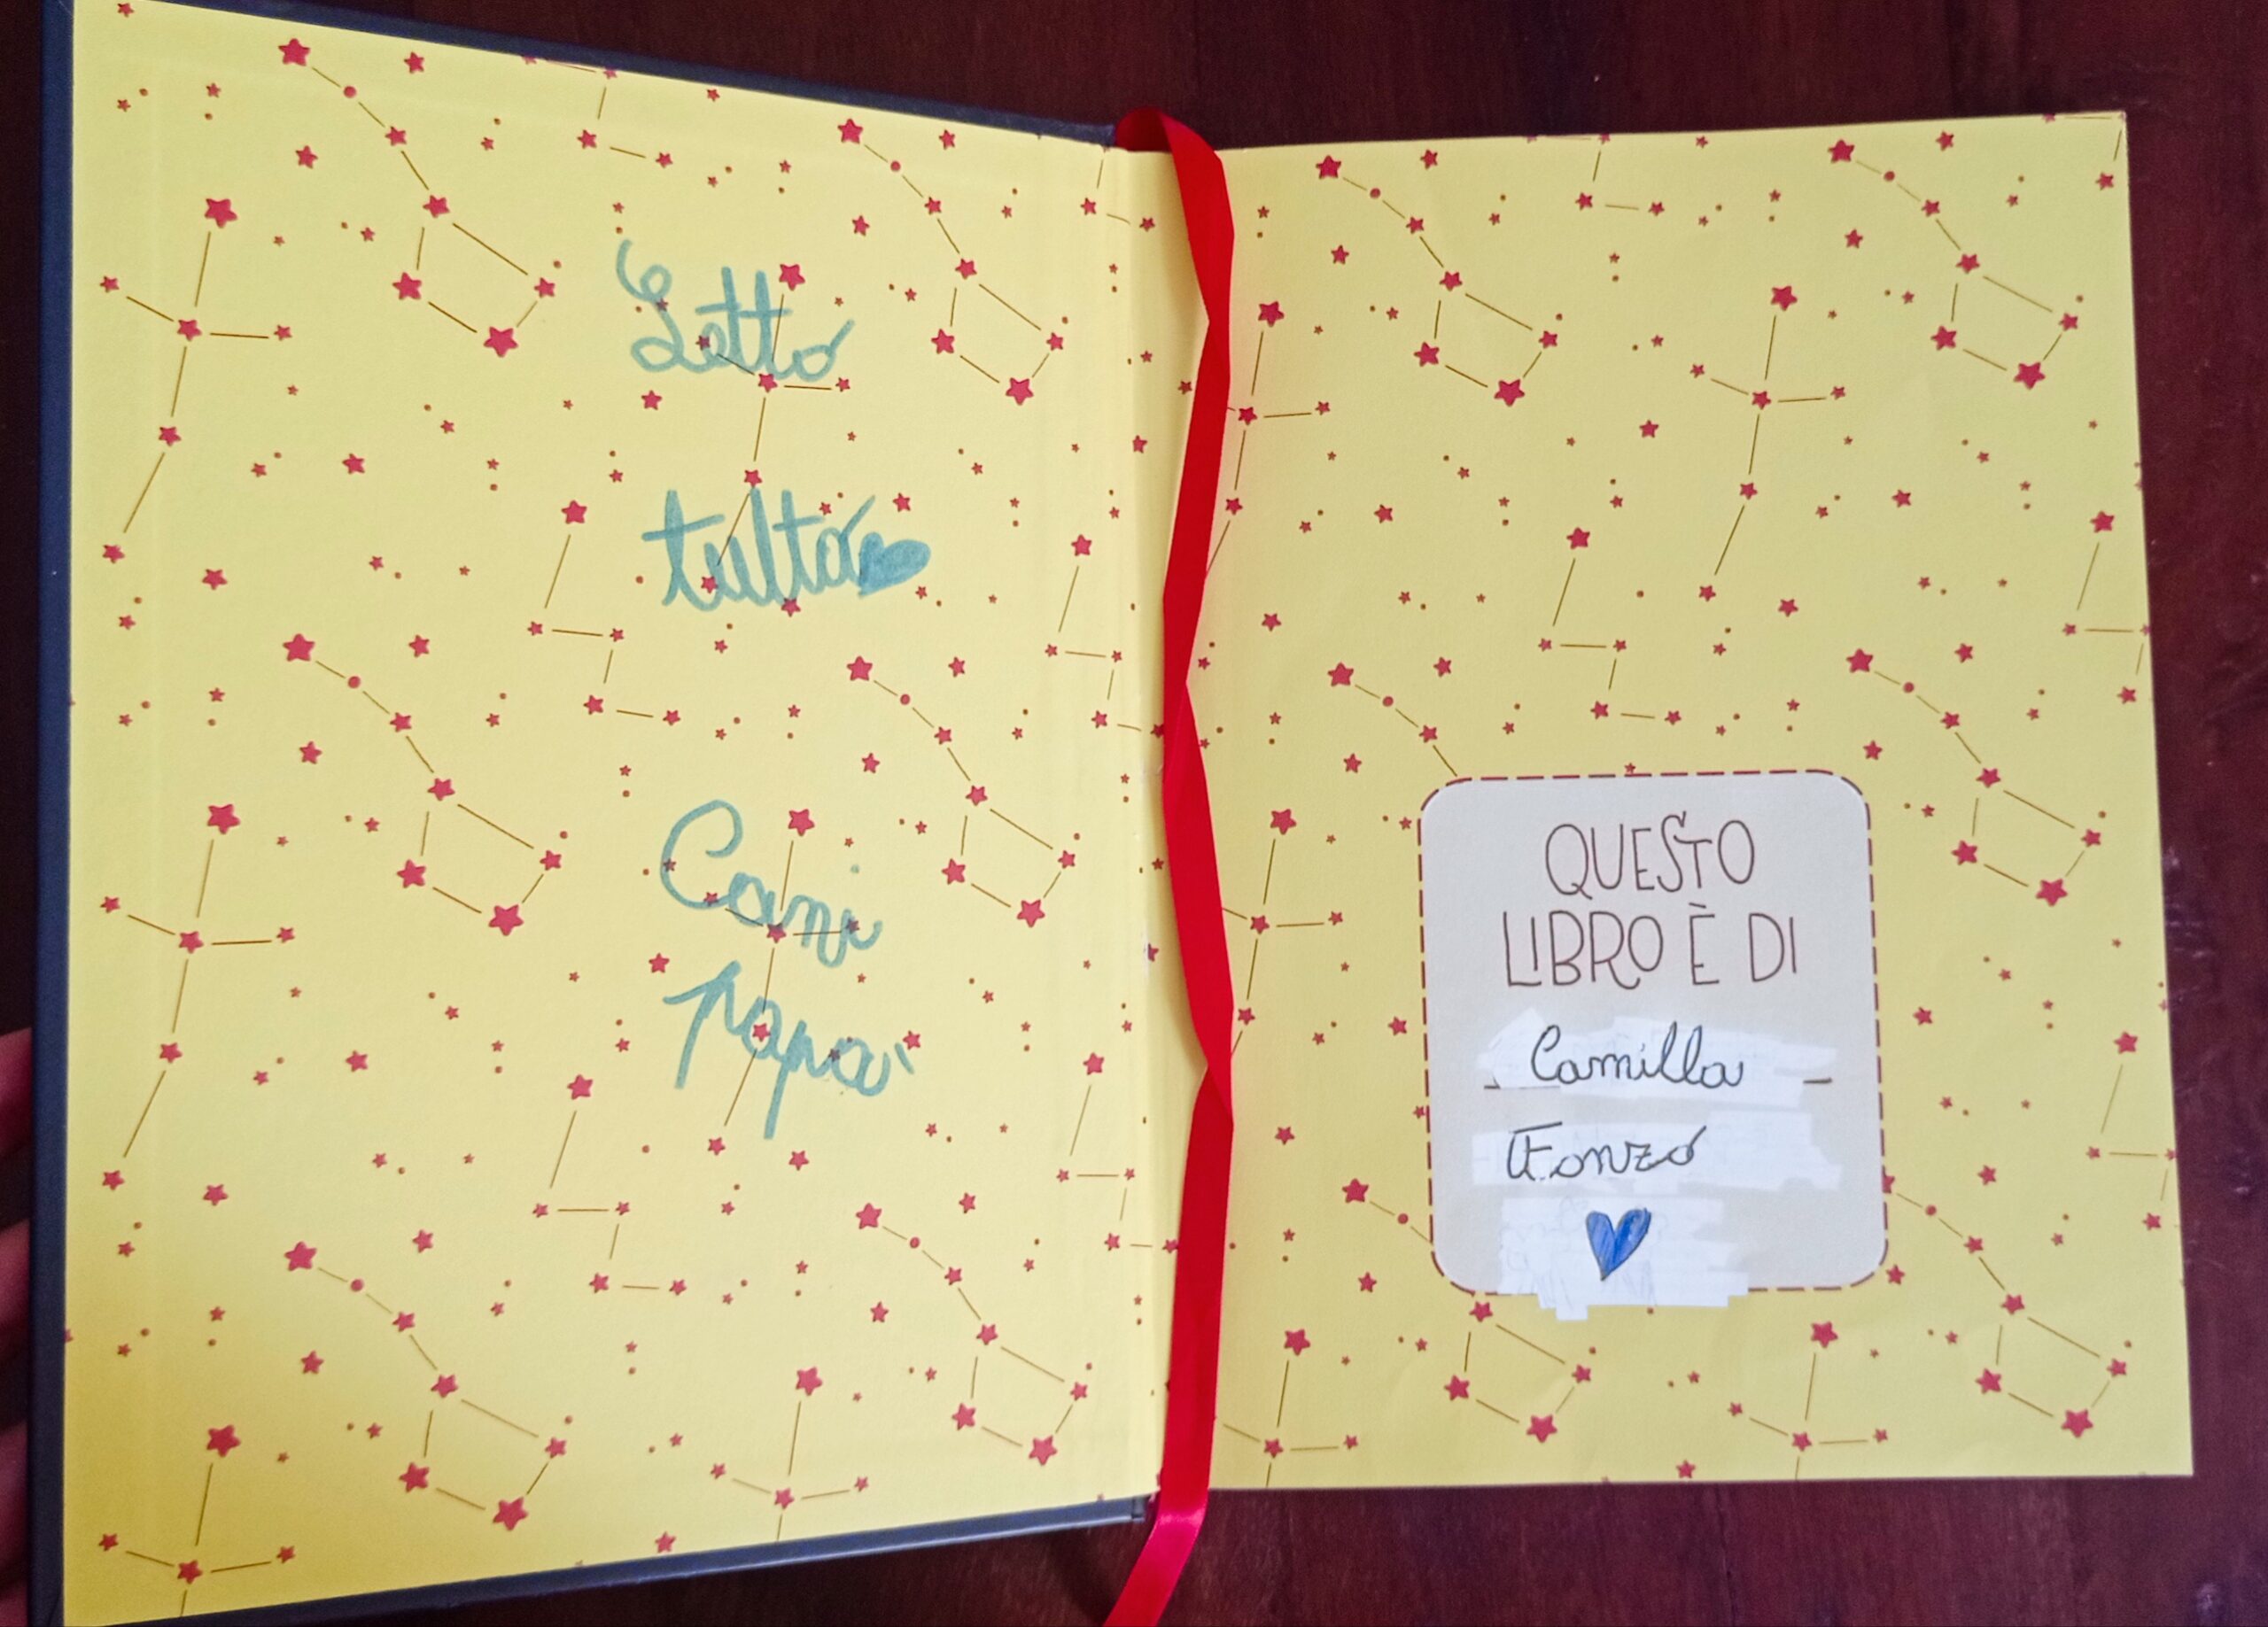 Letto
tutto
Cami
papà
QUESTO
LIBRO È DI
Camilla
Fonzo